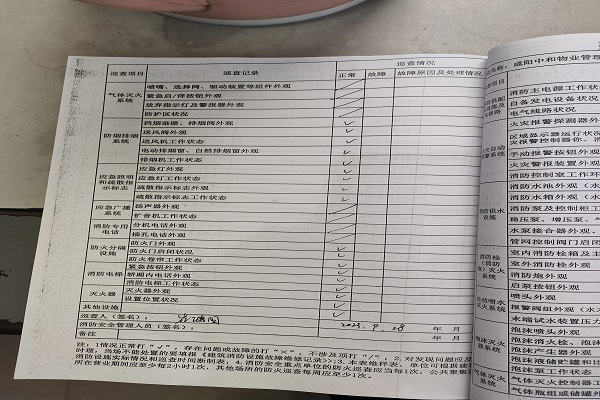 巡查项目 巡查记录 巡查情况
正常 故障 故障原因及处理情况
气体灭火系统
喷嘴、选择阀、驱动装置等组件外观
紧急启/停按钮外观
放弃指示灯及警报器外观
防护区状况
防烟排烟系统
挡烟垂壁、排烟阀外观 √
送风阀外观 √
送风机工作状态 √
电动排烟窗、自然排烟窗外观 √
排烟机工作状态 √
应急照明和疏散指示标志
应急灯外观 √
应急灯工作状态 √
疏散指示标志外观 √
疏散指示标志工作状态 √
应急广播系统
扬声器外观
扩音机工作状态
消防专用电话
分机电话外观
插孔电话外观
防火分隔设施
防火门外观 √
防火门启闭状况 √
防火卷帘工作状态 √
消防电梯
紧急按钮外观 √
轿厢内电话外观 √
消防电梯工作状态 √
灭火器
灭火器外观 √
设置位置状况 √
其他设施
巡查人（签名）：
2023.9.28 年 月
消防安全管理人员（签名）： 年 月
备注
注：1情况正常打“√”，存在问题或故障的打“×”，不涉及项打“/”；2.对发现问题应及
时处理，当场不能处置的要填报《建筑消防设施故障维修记录》；3.本表维样表，单位可根据建
消防设施实际情况和巡查时间断制表。4.消防安全重点单位的防火巡查应当每1次，公共聚集
所在营业期间应至少每2小时1次，其他场所的防火巡查每周应至少1次。
名称：咸阳中和物业管理
消防主电源工作状
自备发电设备状况
电气线路状况
火灾探测器外
区域显示器运行状况
手动报警按钮外观
火灾警报装置外观
消防控制室工作环
消防水池外观
消防水箱外观
消防泵及控制柜工
稳压泵、增压泵、气
水泵接合器外观、
管网控制阀门启闭
室内消防栓箱及主
室外消防栓外观
消防炮外观
启泵按钮外观
喷头外观
报警阀组外观
末端试水装置压力
泡沫喷头外观
泡沫消火栓、泡沫
泡沫产生器外观
泡沫液储罐和
泡沫泵工作状态
气体灭火控制器工
气体瓶组或储罐外